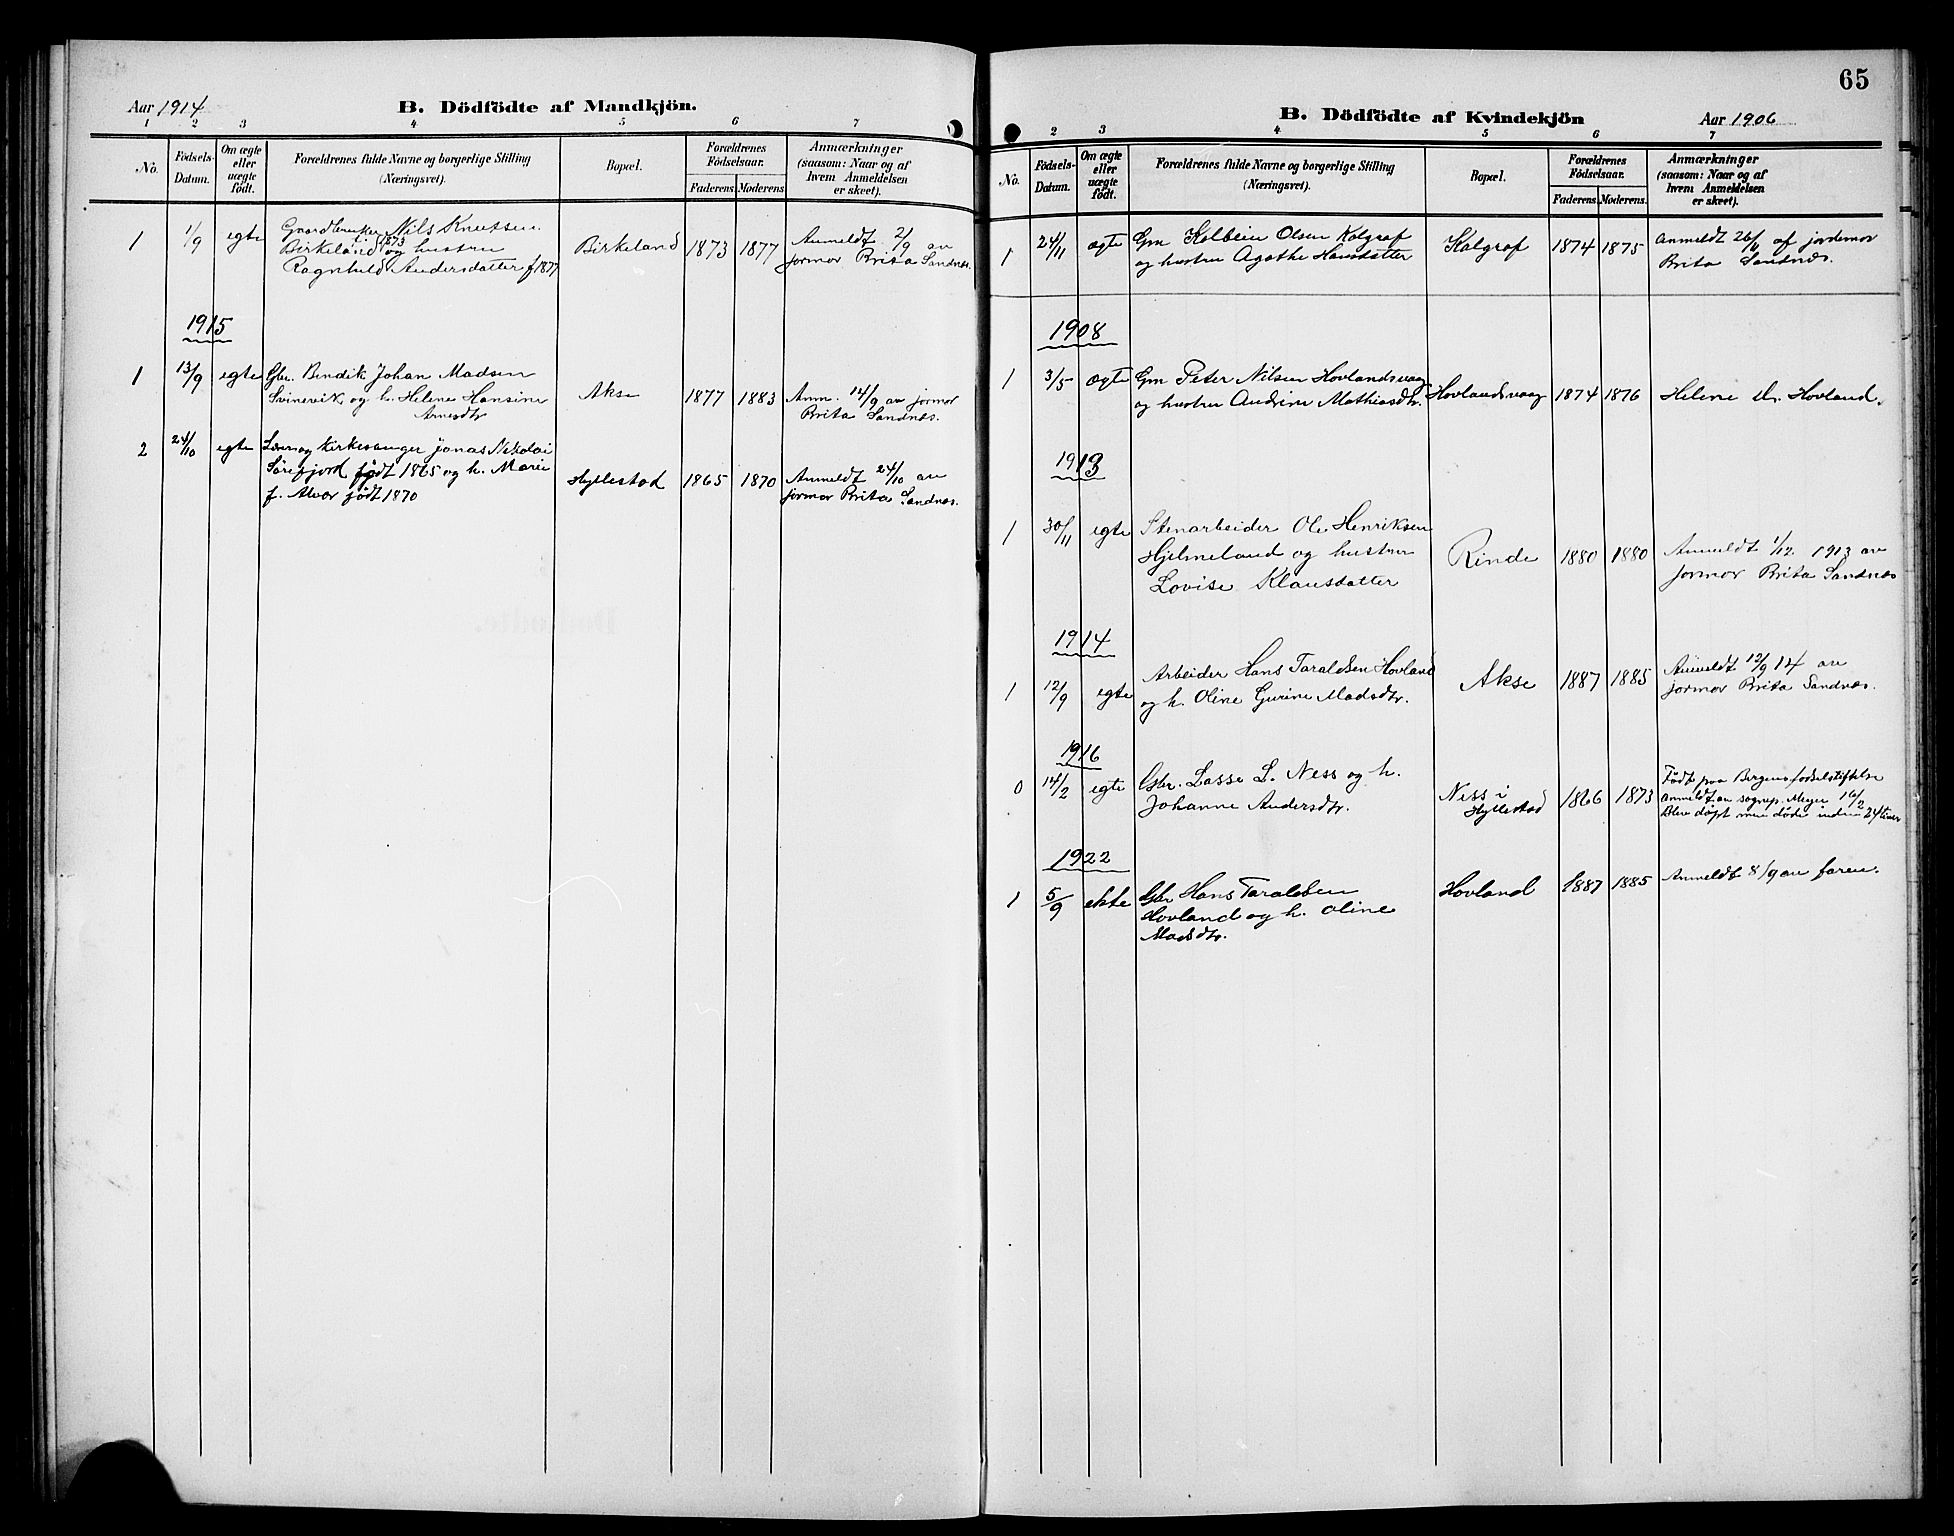 Aar 1914
B. Dödfödte af Mandkjön.
1 2 3 4 5 6 7
No. Födsels-Datum. Om ægte eller uægte födt. Forældrenes fulde Navne og borgerlige Stilling (Næringsvei). Bopæl. Forældrenes Födselsaar. Faderens Moderens Anmærkninger (saasom: Naar og af hvem Anmeldelsen er skeet).
1 1/9 egte Gaardbruker Nils Knutsen Birkeland f 1873 og hustru Ragnhild Andersdatter f 1877 Birkeland 1873 1877 Anmeldt 2/9 av jormor Brita Sandnæs.
1915
1 13/9 egte Gbr. Bendik Johan Madsen Svinevik og h. Helene Hansine Arnesdtr Akse 1877 1883 Anm. 14/9 av jormor Brita Sandnæs.
2 24/10 egte Lærer og kirkesanger Jonas Nikolai Sörefjord født 1865 og h. Marie f. Alvær født 1870 Hyllestad 1865 1870 Anmeldt 24/10 av jormor Brita Sandnæs.
65
B. Dödfödte af Kvindekjön
Aar 1906
2 3 4 5 6 7
No. Födsels-Datum. Om ægte eller uægte födt. Forældrenes fulde Navne og borgerlige Stilling (Næringsvei). Bopæl. Forældrenes Födselsaar. Faderens Moderens. Anmærkninger (saasom: Naar og af hvem Anmeldelsen er skeet).
1 24/11 ægte Gm Kolbein Olsen Kolgrof og hustru Agathe Hansdatter Kolgrof 1874 1875 Anmeldt 26/11 af jordemor Brita Sandnæs.
1908
1 3/5 ægte Gm Peter Nilsen Hovlandsvaag og hustru Andrine Mathiasdtr. Hovlandsvaag 1874 1876 Helene Hovland.
1913
1 30/11 egte Stenarbeider Ole Henriksen Hjelmeland og hustru Lovise Klausdatter Rinde 1880 1880 Anmeldt 1/12 1913 av jormor Brita Sandnæs
1914
1 12/9 egte Arbeider Hans Taraldsen Hovland og h. Oline Gurine Madsdtr. Akse 1887 1885 Anmeldt 12/9 14 av jormor Brita Sandnæs.
1916
0 14/2 egte Gbr. Lasse L. Ness og h. Johanne Andersdtr. Ness i Hyllestad 1866 1873 Födt paa Bergens fødselstiftelse anmeldt av sognep. Meyer 16/2 Blev døpt men døde inden 24 timer
1922
1 5/9 ekte Gbr Hans Taraldsen Hovland og h. Oline Madsdtr. Hovland 1887 1885 Anmeldt 8/9 av faren.